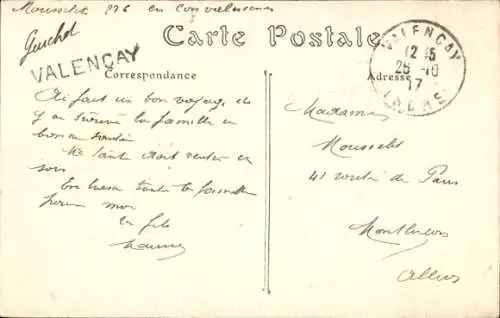 Mousselet 226 en convalescence
Guichet
VALENÇAY
Carte Postale
Correspondance
Adresse
VALENÇAY
12 15
25 -10
17
INDRE
Ai fait un bon voyage, ai
la famille en
bonne santé
Ma tante doit rentrer ce
soir
toute la famille
pour moi
ton fils
Madame
Mousselet
41 route de Paris
Montluçon
Allier